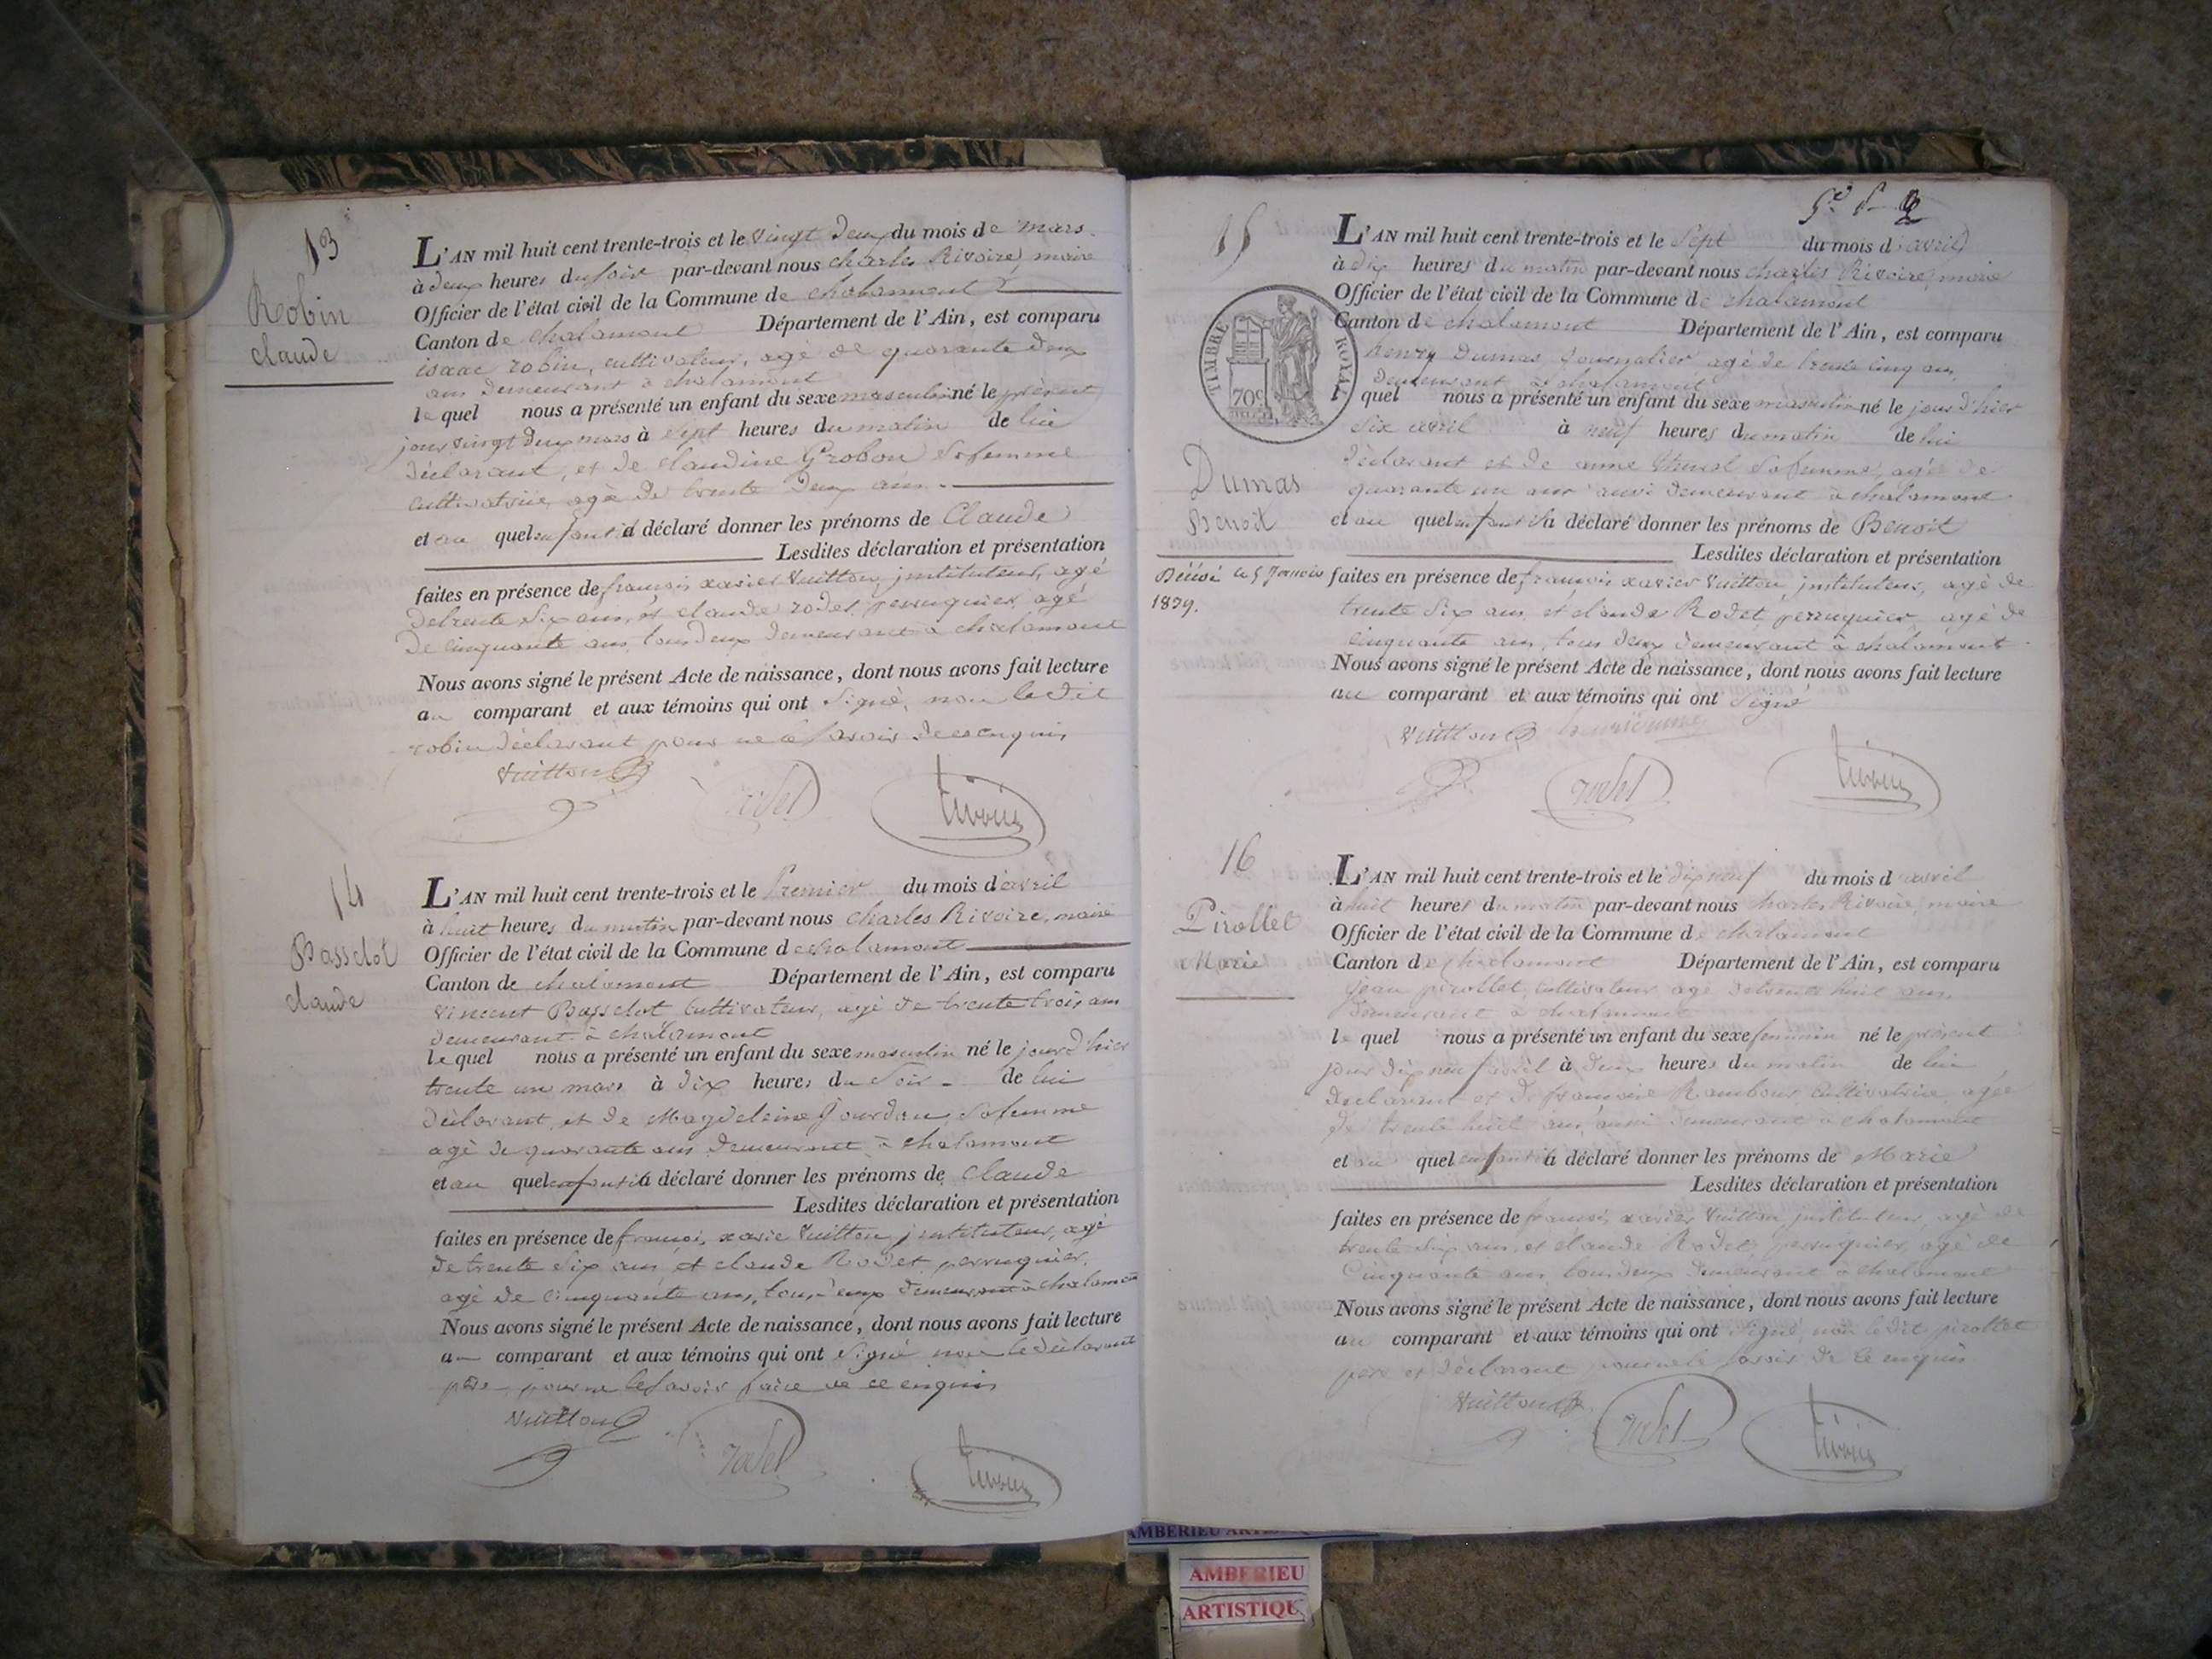 13
Robin
claude
L'AN mil huit cent trente-trois et le vingt deux du mois de mars
à deux heures du soir par-devant nous charles Rivoire, maire
Officier de l'état civil de la Commune de chalamont
Canton de chalamont Département de l'Ain, est comparu
isaac robin, cultivateur, agé de quarante deux
ans demeurant à chalamont
le quel nous a présenté un enfant du sexe masculin né le présent
jour vingt deux mars à sept heures du matin de lui
déclarant, et de claudine Grobon sa femme
cultivatrice agé de trente deux ans
et au quel enfant il a déclaré donner les prénoms de Claude
Lesdites déclaration et présentation
faites en présence de françois xavier Vuitton, instituteur, agé
de trente six ans, et claude rodet perruquier, agé
de cinquante ans, tous deux demeurant à chalamont
Nous avons signé le présent Acte de naissance, dont nous avons fait lecture
au comparant et aux témoins qui ont signé, non ledit
robin déclarant pour ne le savoir de ce enquis
Vuitton
rodet
14
Basselot
claude
L'AN mil huit cent trente-trois et le Premier du mois d'avril
à huit heures du matin par-devant nous Charles Rivoire, maire
Officier de l'état civil de la Commune de chalamont
Canton de chalamont Département de l'Ain, est comparu
vincent Basselot cultivateur, agé de trente trois ans
demeurant à chalamont
le quel nous a présenté un enfant du sexe masculin né le jour d'hier
trente un mars à dix heures du soir de lui
déclarant, et de Magdeleine Jourdan, sa femme
agé de quarante ans demeurant à chalamont
et au quel enfant il a déclaré donner les prénoms de claude
Lesdites déclaration et présentation
faites en présence de françois xavie Vuitton instituteur, agé
de trente six ans, et claude Rodet, perruquier,
agé de cinquante ans, tous deux demeurant à chalamont
Nous avons signé le présent Acte de naissance, dont nous avons fait lecture
au comparant et aux témoins qui ont signé non le déclarant
père pour ne le savoir faire de ce enquis
Vuitton
rodet
15
TIMBRE ROYAL
70c
Dumas
Benoit
Décédé le 5 Janvier
1839.
L'AN mil huit cent trente-trois et le sept du mois d'avril
à dix heures du matin par-devant nous charles Rivoire, maire
Officier de l'état civil de la Commune de chalamont
Canton de chalamont Département de l'Ain, est comparu
henry Dumas journalier agé de trente cinq ans
demeurant à chalamont
quel nous a présenté un enfant du sexe masculin né le jour d'hier
six avril à neuf heures du matin de lui
déclarant et de anne sa femme, agée de
quarante un ans aussi demeurant à chalamont
et au quel enfant il a déclaré donner les prénoms de Benoit
Lesdites déclaration et présentation
faites en présence de françois xavier Vuitton, instituteur, agé de
trente six ans, et claude Rodet, perruquier, agé de
cinquante ans, tous deux demeurant à chalamont
Nous avons signé le présent Acte de naissance, dont nous avons fait lecture
au comparant et aux témoins qui ont signé
Vuitton
rodet
16
Pirollet
Marie
L'AN mil huit cent trente-trois et le dix neuf du mois d'avril
à huit heures du matin par-devant nous charles Rivoire, maire
Officier de l'état civil de la Commune de chalamont
Canton de chalamont Département de l'Ain, est comparu
jean pirollet, cultivateur agé de trente huit ans,
demeurant à chalamont
le quel nous a présenté un enfant du sexe feminin né le présent
jour dix neuf avril à deux heures du matin de lui
déclarant et de françoise Rambour, cultivatrice, agée
de trente huit ans, aussi demeurant à chalamont
et au quel enfant il a déclaré donner les prénoms de Marie
Lesdites déclaration et présentation
faites en présence de françois xavier Vuitton instituteur, agé de
trente six ans, et claude Rodet, perruquier, agé de
cinquante ans, tous deux demeurant à chalamont
Nous avons signé le présent Acte de naissance, dont nous avons fait lecture
au comparant et aux témoins qui ont signé, non ledit pirollet
père et déclarant pour ne le savoir de ce enquis
Vuitton
rodet
AMBERIEU
ARTISTIQUE